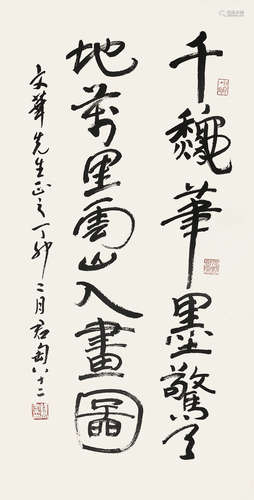 千龝筆墨驚天
地萬里雲山入畫圖
文華先生正之丁卯二月君匋八十二